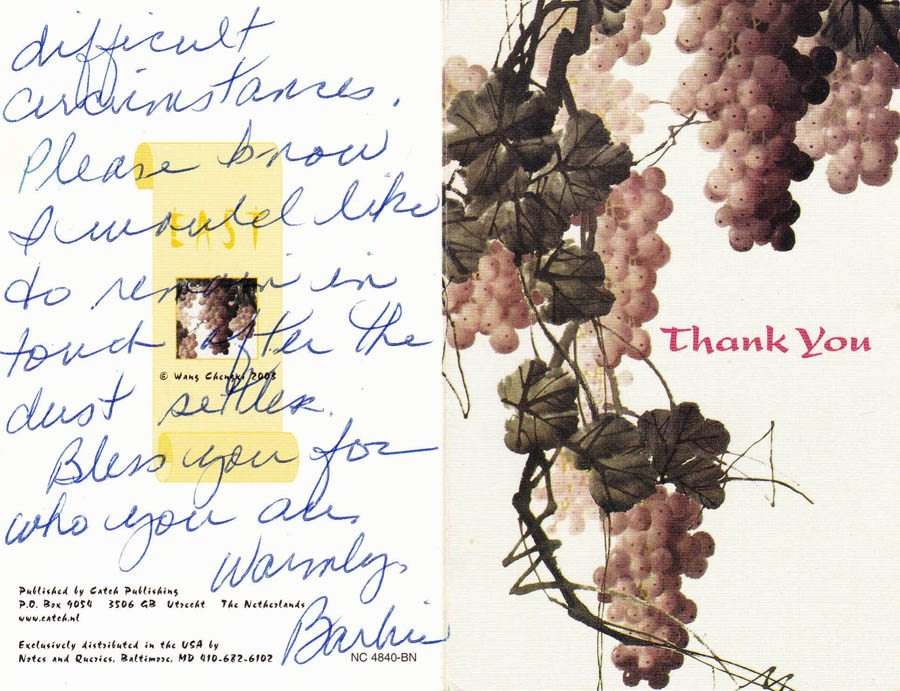 difficult
circumstances.
Please know
I would like
to remain in
touch after the
dust settles.
Bless you for
who you are.
Warmly,
Barbie
EAST
© Wang Chengxi 2003
Published by Catch Publishing
P.O. Box 9054 3506 GB Utrecht The Netherlands
www.catch.nl
Exclusively distributed in the USA by
Notes and Queries, Baltimore, MD 410-682-6102
NC 4840-BN
Thank You